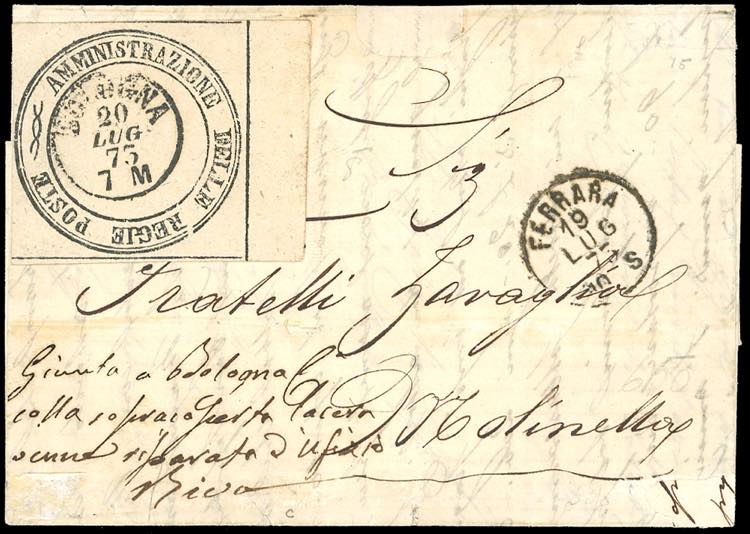 AMMINISTRAZIONE DELLE REGIE POSTE
BOLOGNA
20
LUG
75
7 M
FERRARA
19
LUG
10 S
Fratelli Zavaglia
Molinella
Giunta a Bologna
colla sopracoperta lacera
venne riparata d'Ufizio
Riva
15